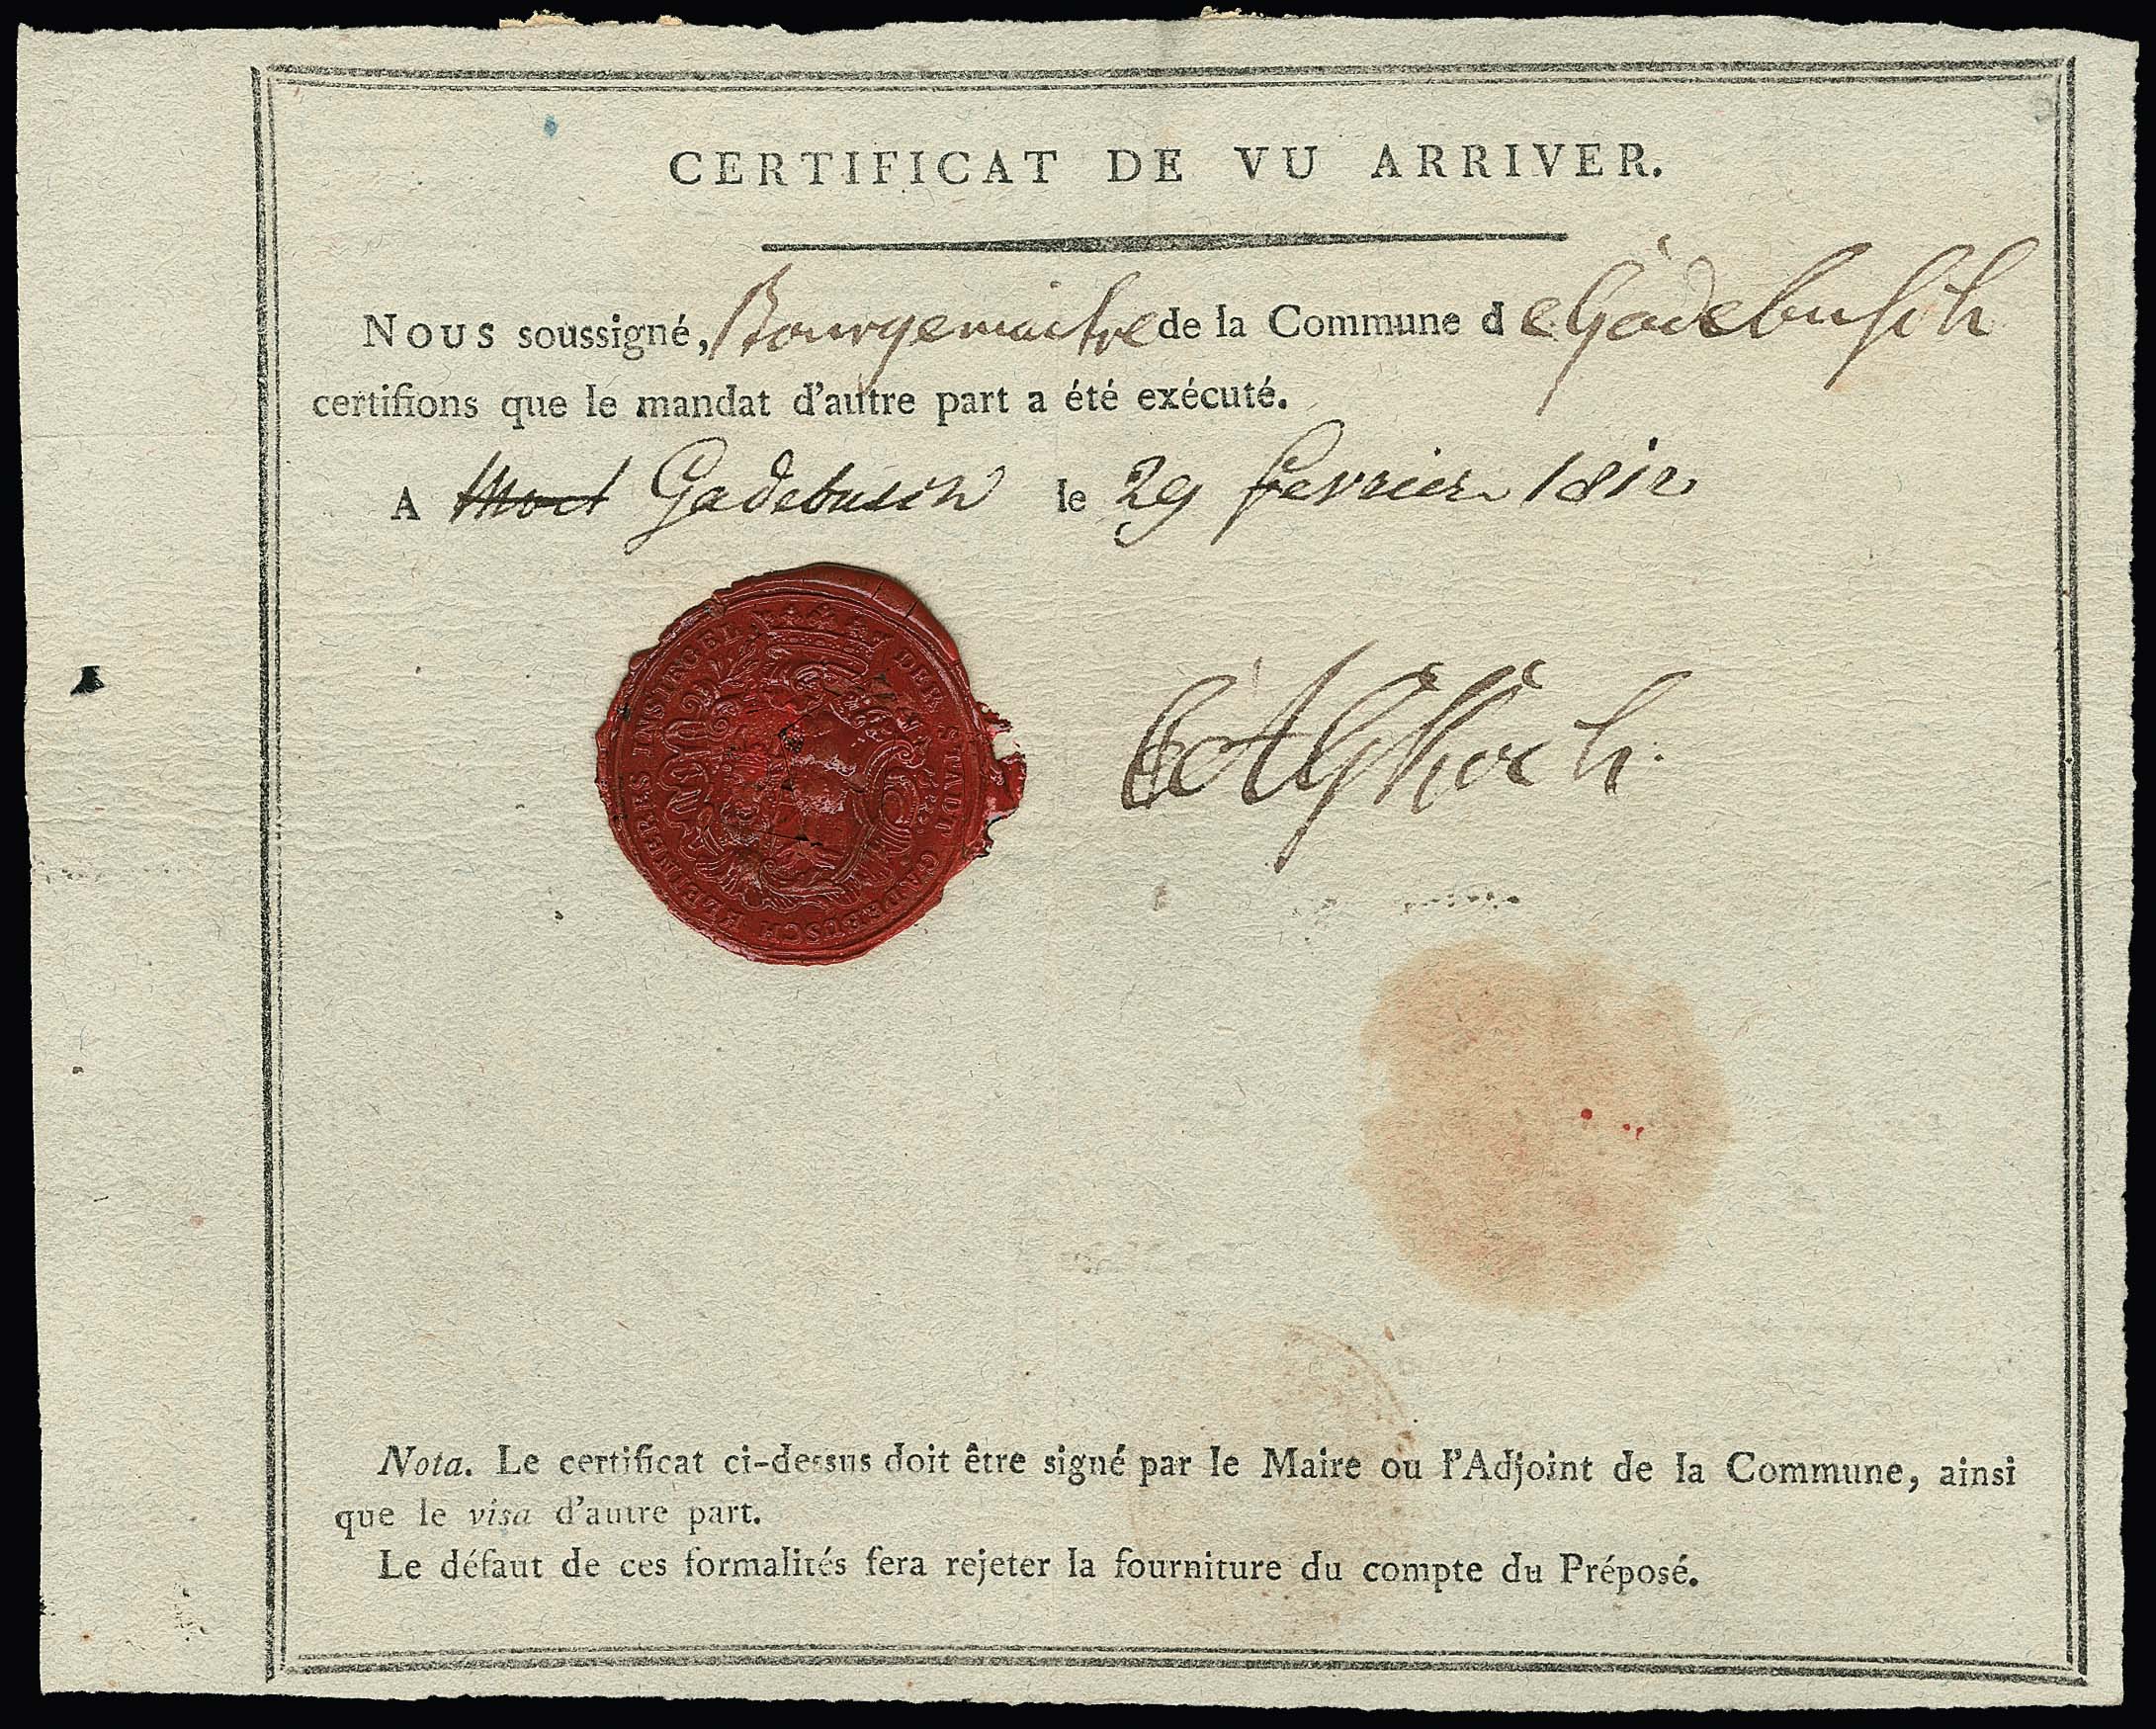 CERTIFICAT DE VU ARRIVER.
NOUS soussigné, Bourgemaitre de la Commune de Gadebusch
certifions que le mandat d'autre part a été exécuté.
A Gadebusch le 29 fevrier 1812
KLEINERES INSIEGEL DER STADT GADEBUSCH
Nota. Le certificat ci-dessus doit être signé par le Maire ou l'Adjoint de la Commune, ainsi
que le visa d'autre part.
Le défaut de ces formalités fera rejeter la fourniture du compte du Préposé.